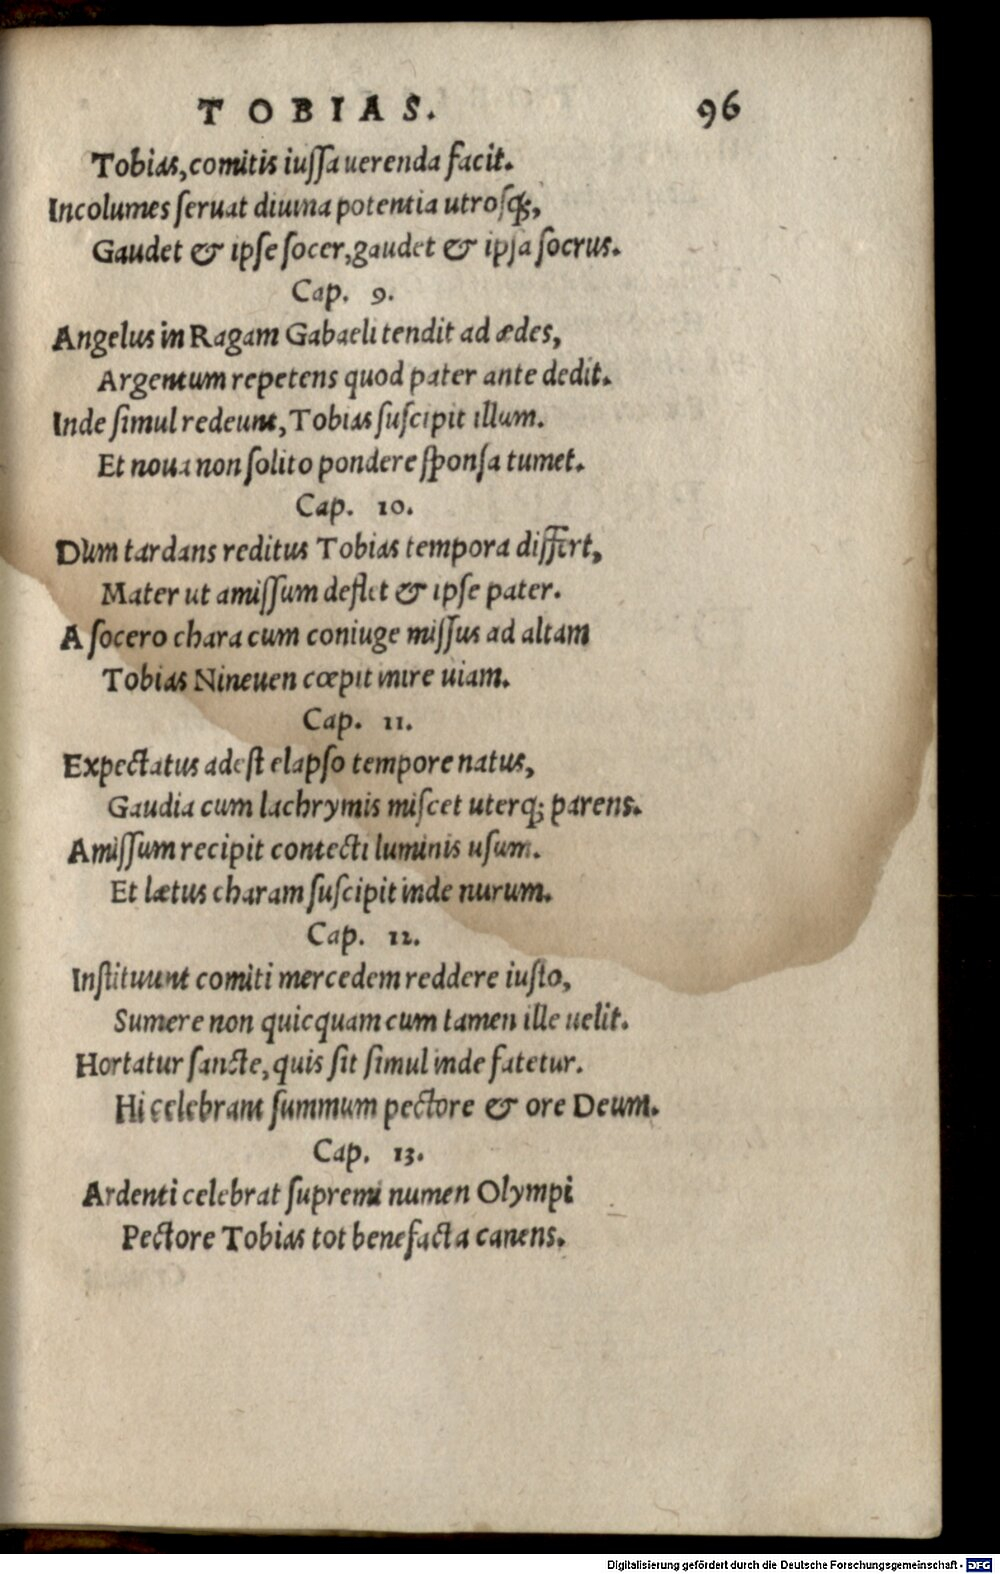 TOBIAS. 96
Tobias, comitis iussa uerenda facit.
Incolumes seruat diuina potentia utrosq;,
Gaudet & ipse socer, gaudet & ipsa socrus.
Cap. 9.
Angelus in Ragam Gabaeli tendit ad ædes,
Argentum repetens quod pater ante dedit.
Inde simul redeunt, Tobias suscipit illum.
Et noua non solito pondere sponsa tumet.
Cap. 10.
Dum tardans reditus Tobias tempora differt,
Mater ut amissum deflet & ipse pater.
A socero chara cum coniuge missus ad altam
Tobias Nineuen cœpit inire uiam.
Cap. 11.
Expectatus adest elapso tempore natus,
Gaudia cum lachrymis miscet uterq; parens.
Amissum recipit contecti luminis usum.
Et lætus charam suscipit inde nurum.
Cap. 12.
Instituunt comiti mercedem reddere iusto,
Sumere non quicquam cum tamen ille uelit.
Hortatur sancte, quis sit simul inde fatetur.
Hi celebrant summum pectore & ore Deum.
Cap. 13.
Ardenti celebrat supremi numen Olympi
Pectore Tobias tot benefacta canens.
Digitalisierung gefördert durch die Deutsche Forschungsgemeinschaft - DFG